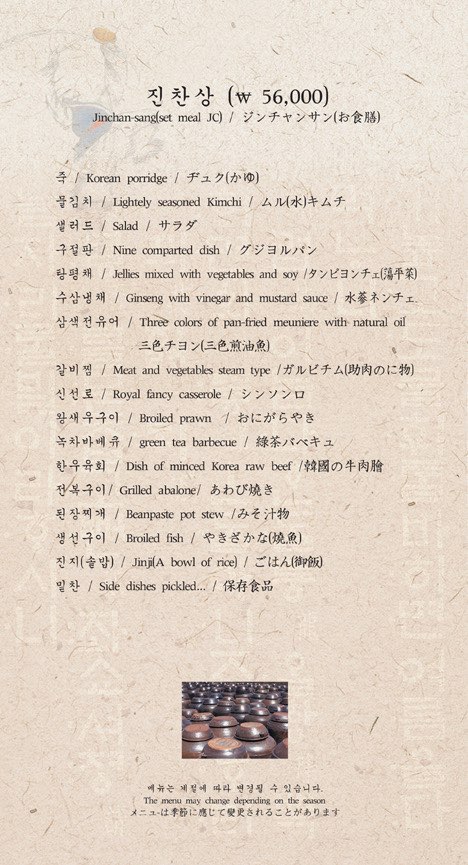 진찬상 (₩ 56,000)
Jinchan-sang(set meal JC) / ジンチャンサン(お食膳)
죽 / Korean porridge / ヂュク(かゆ)
물김치 / Lightely seasoned Kimchi / ムル(水)キムチ
샐러드 / Salad / サラダ
구절판 / Nine comparted dish / グジヨルパン
탕평채 / Jellies mixed with vegetables and soy /タンピヨンチェ(蕩平菜)
수삼냉채 / Ginseng with vinegar and mustard sauce / 水蔘ネンチェ
삼색전유어 / Three colors of pan-fried meuniere with natural oil
三色チヨン(三色煎油魚)
갈비찜 / Meat and vegetables steam type /ガルビチム(助肉のに物)
신선로 / Royal fancy casserole / シンソンロ
왕새우구이 / Broiled prawn / おにがらやき
녹차바베큐 / green tea barbecue / 綠茶バベキュ
한우육회 / Dish of minced Korea raw beef /韓國の牛肉膾
전복구이/ Grilled abalone/ あわび燒き
된장찌개 / Beanpaste pot stew /みそ汁物
생선구이 / Broiled fish / やきざかな(燒魚)
진지(솥밥) / Jinji(A bowl of rice) / ごはん(御飯)
밑찬 / Side dishes pickled... / 保存食品
메뉴는 계절에 따라 변경될 수 있습니다.
The menu may change depending on the season
メニューは季節に応じて變更されることがあります